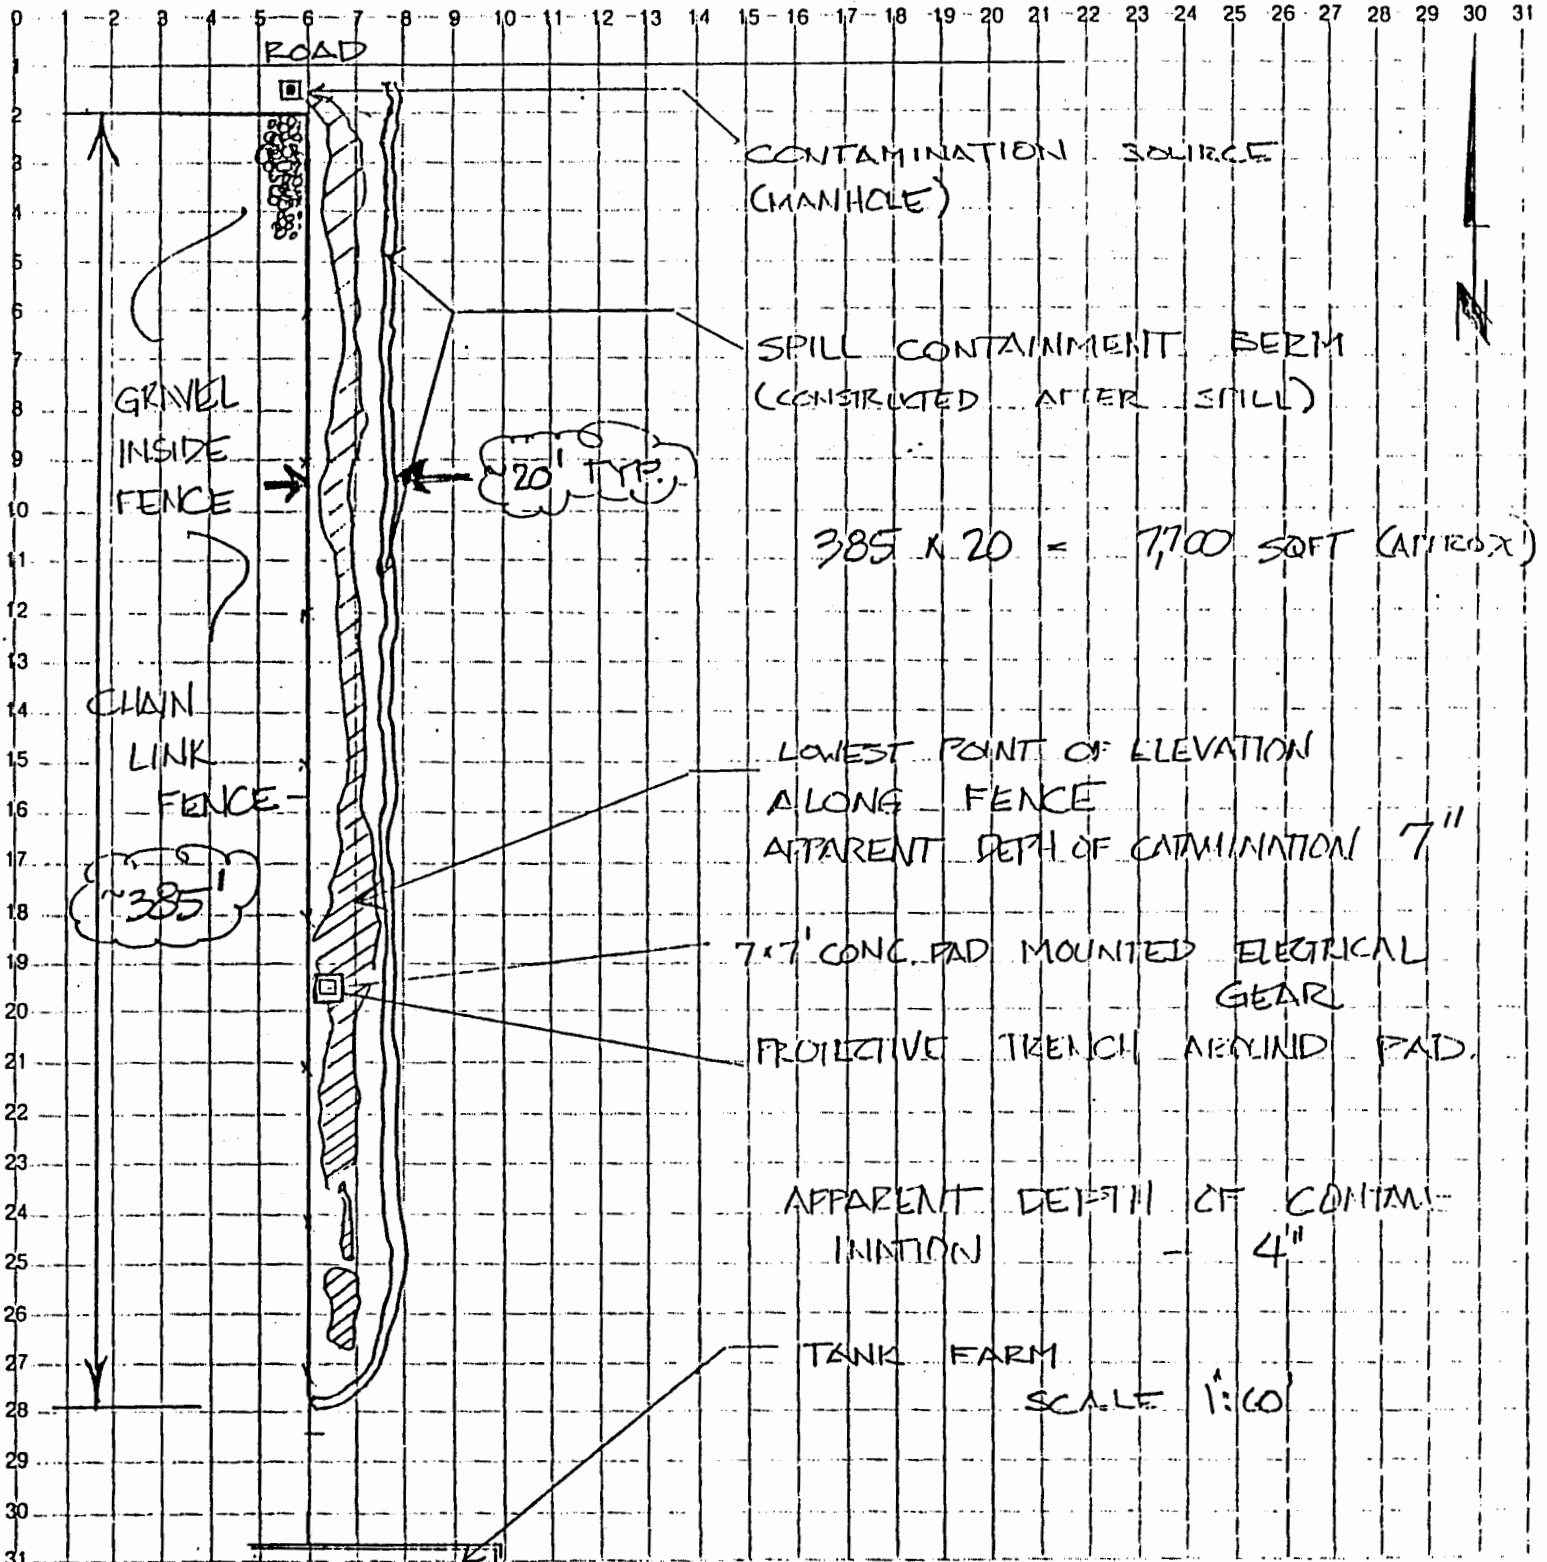 0 1 2 3 4 5 6 7 8 9 10 11 12 13 14 15 16 17 18 19 20 21 22 23 24 25 26 27 28 29 30 31
1
2
3
4
5
6
7
8
9
10
11
12
13
14
15
16
17
18
19
20
21
22
23
24
25
26
27
28
29
30
31
ROAD
CONTAMINATION SOURCE
(MANHOLE)
N
SPILL CONTAINMENT BERM
(CONSTRUCTED AFTER SPILL)
GRAVEL
INSIDE
FENCE
~20' TYP.
385 x 20 = 7,700 SQFT (APPROX)
CHAIN
LINK
FENCE
~385'
LOWEST POINT OF ELEVATION
ALONG FENCE
APPARENT DEPH OF CATMINATION 7"
7x7' CONC. PAD MOUNTED ELECTRICAL
GEAR
PROTECTIVE TRENCH AROUND PAD.
APPARENT DEPTH OF CONTAM-
INATION - 4"
TANK FARM
SCALE 1":60'